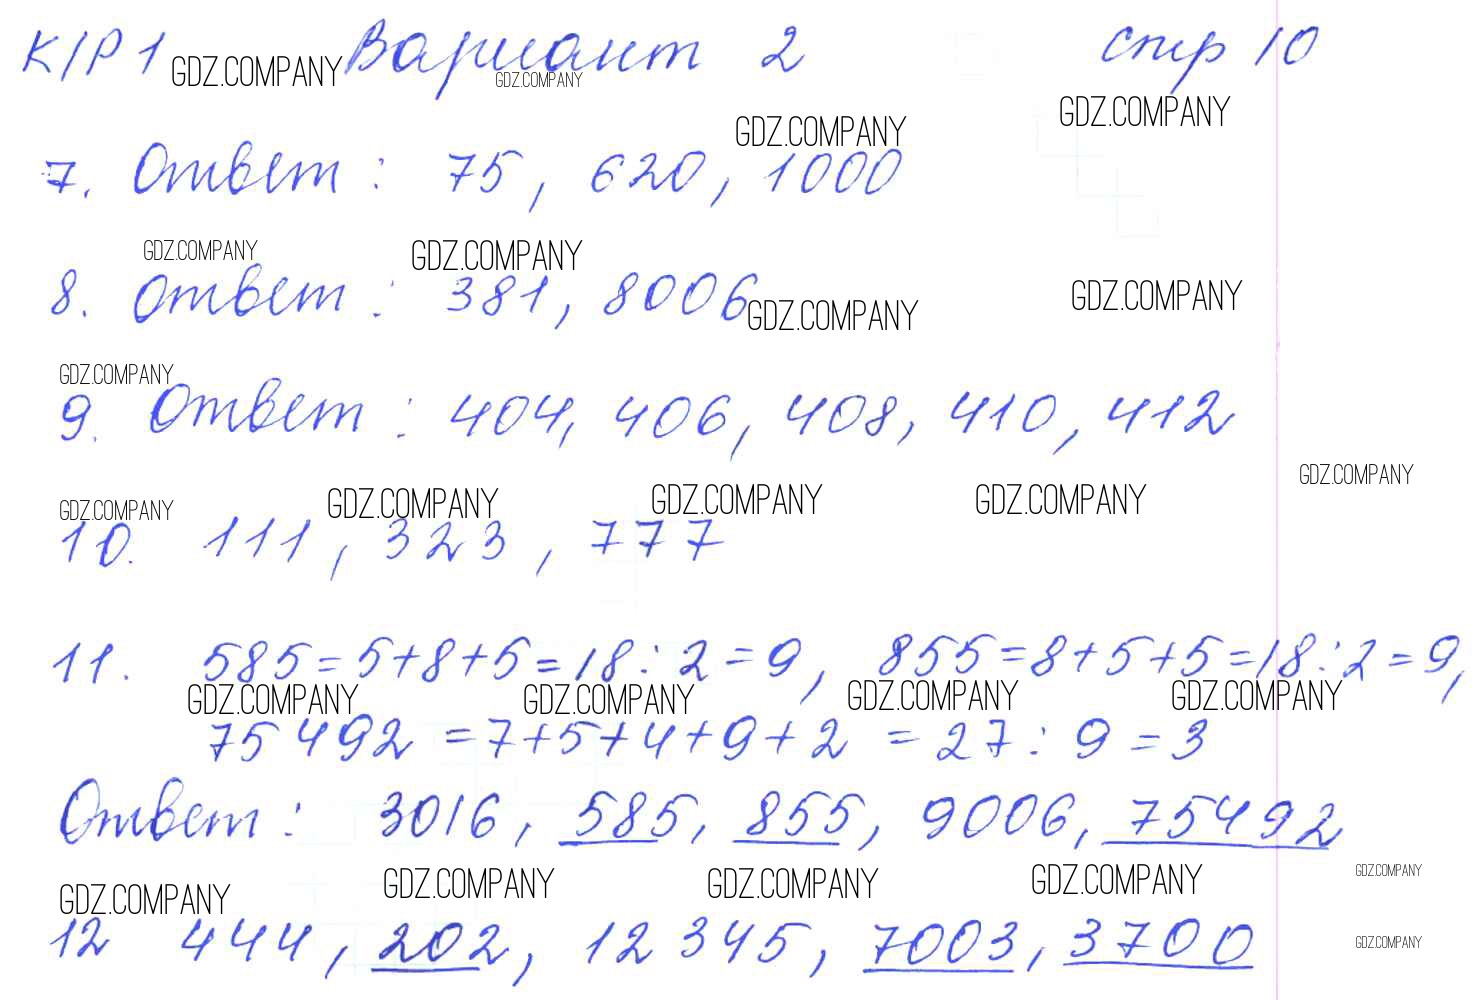 К/Р 1 GDZ.COMPANY Вариант 2 стр 10
GDZ.COMPANY
GDZ.COMPANY GDZ.COMPANY
7. Ответ: 75, 620, 1000
GDZ.COMPANY GDZ.COMPANY
8. Ответ: 381, 8006 GDZ.COMPANY GDZ.COMPANY
GDZ.COMPANY
9. Ответ: 404, 406, 408, 410, 412
GDZ.COMPANY
GDZ.COMPANY GDZ.COMPANY GDZ.COMPANY GDZ.COMPANY
10. 111, 323, 777
11. 585=5+8+5=18:2=9, 855=8+5+5=18:2=9,
GDZ.COMPANY GDZ.COMPANY GDZ.COMPANY GDZ.COMPANY
75492=7+5+4+9+2=27:9=3
Ответ: 3016, 585, 855, 9006, 75492
GDZ.COMPANY GDZ.COMPANY GDZ.COMPANY GDZ.COMPANY GDZ.COMPANY
12 444, 202, 12345, 7003, 3700
GDZ.COMPANY